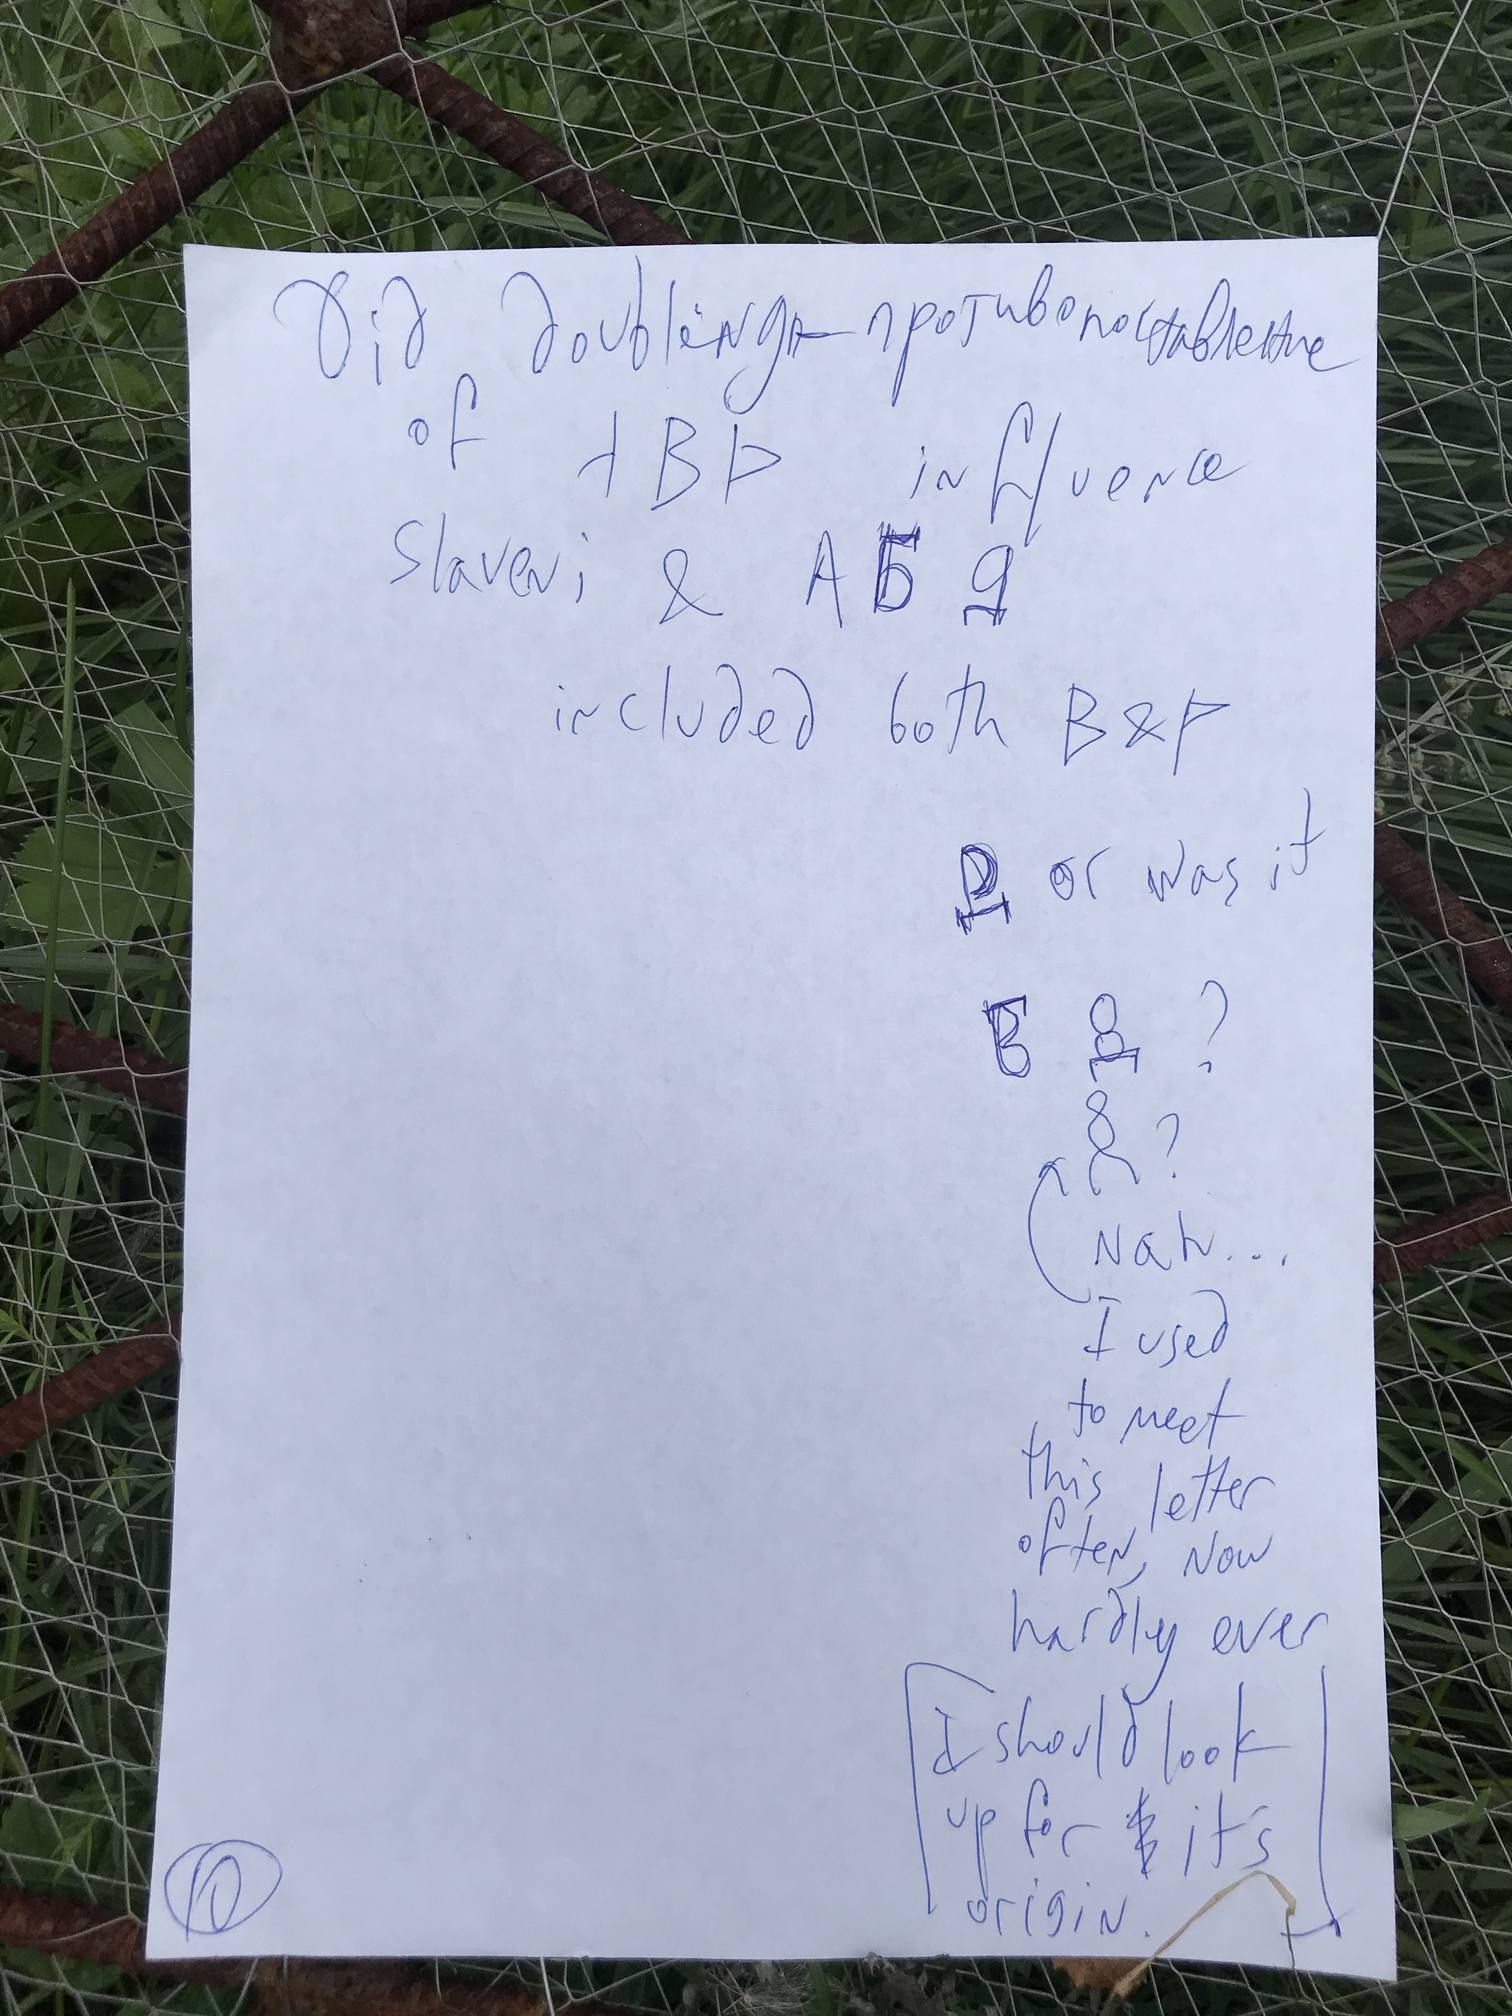 Did doubling-противопоставление
of ⊣BⱵ influence
Slaveni & А Б Д
included both B & Ⱶ
or was it
Б ?
?
Nah...
I used
to meet
this letter
often, now
hardly ever
[I should look
up for its
origin.]
10